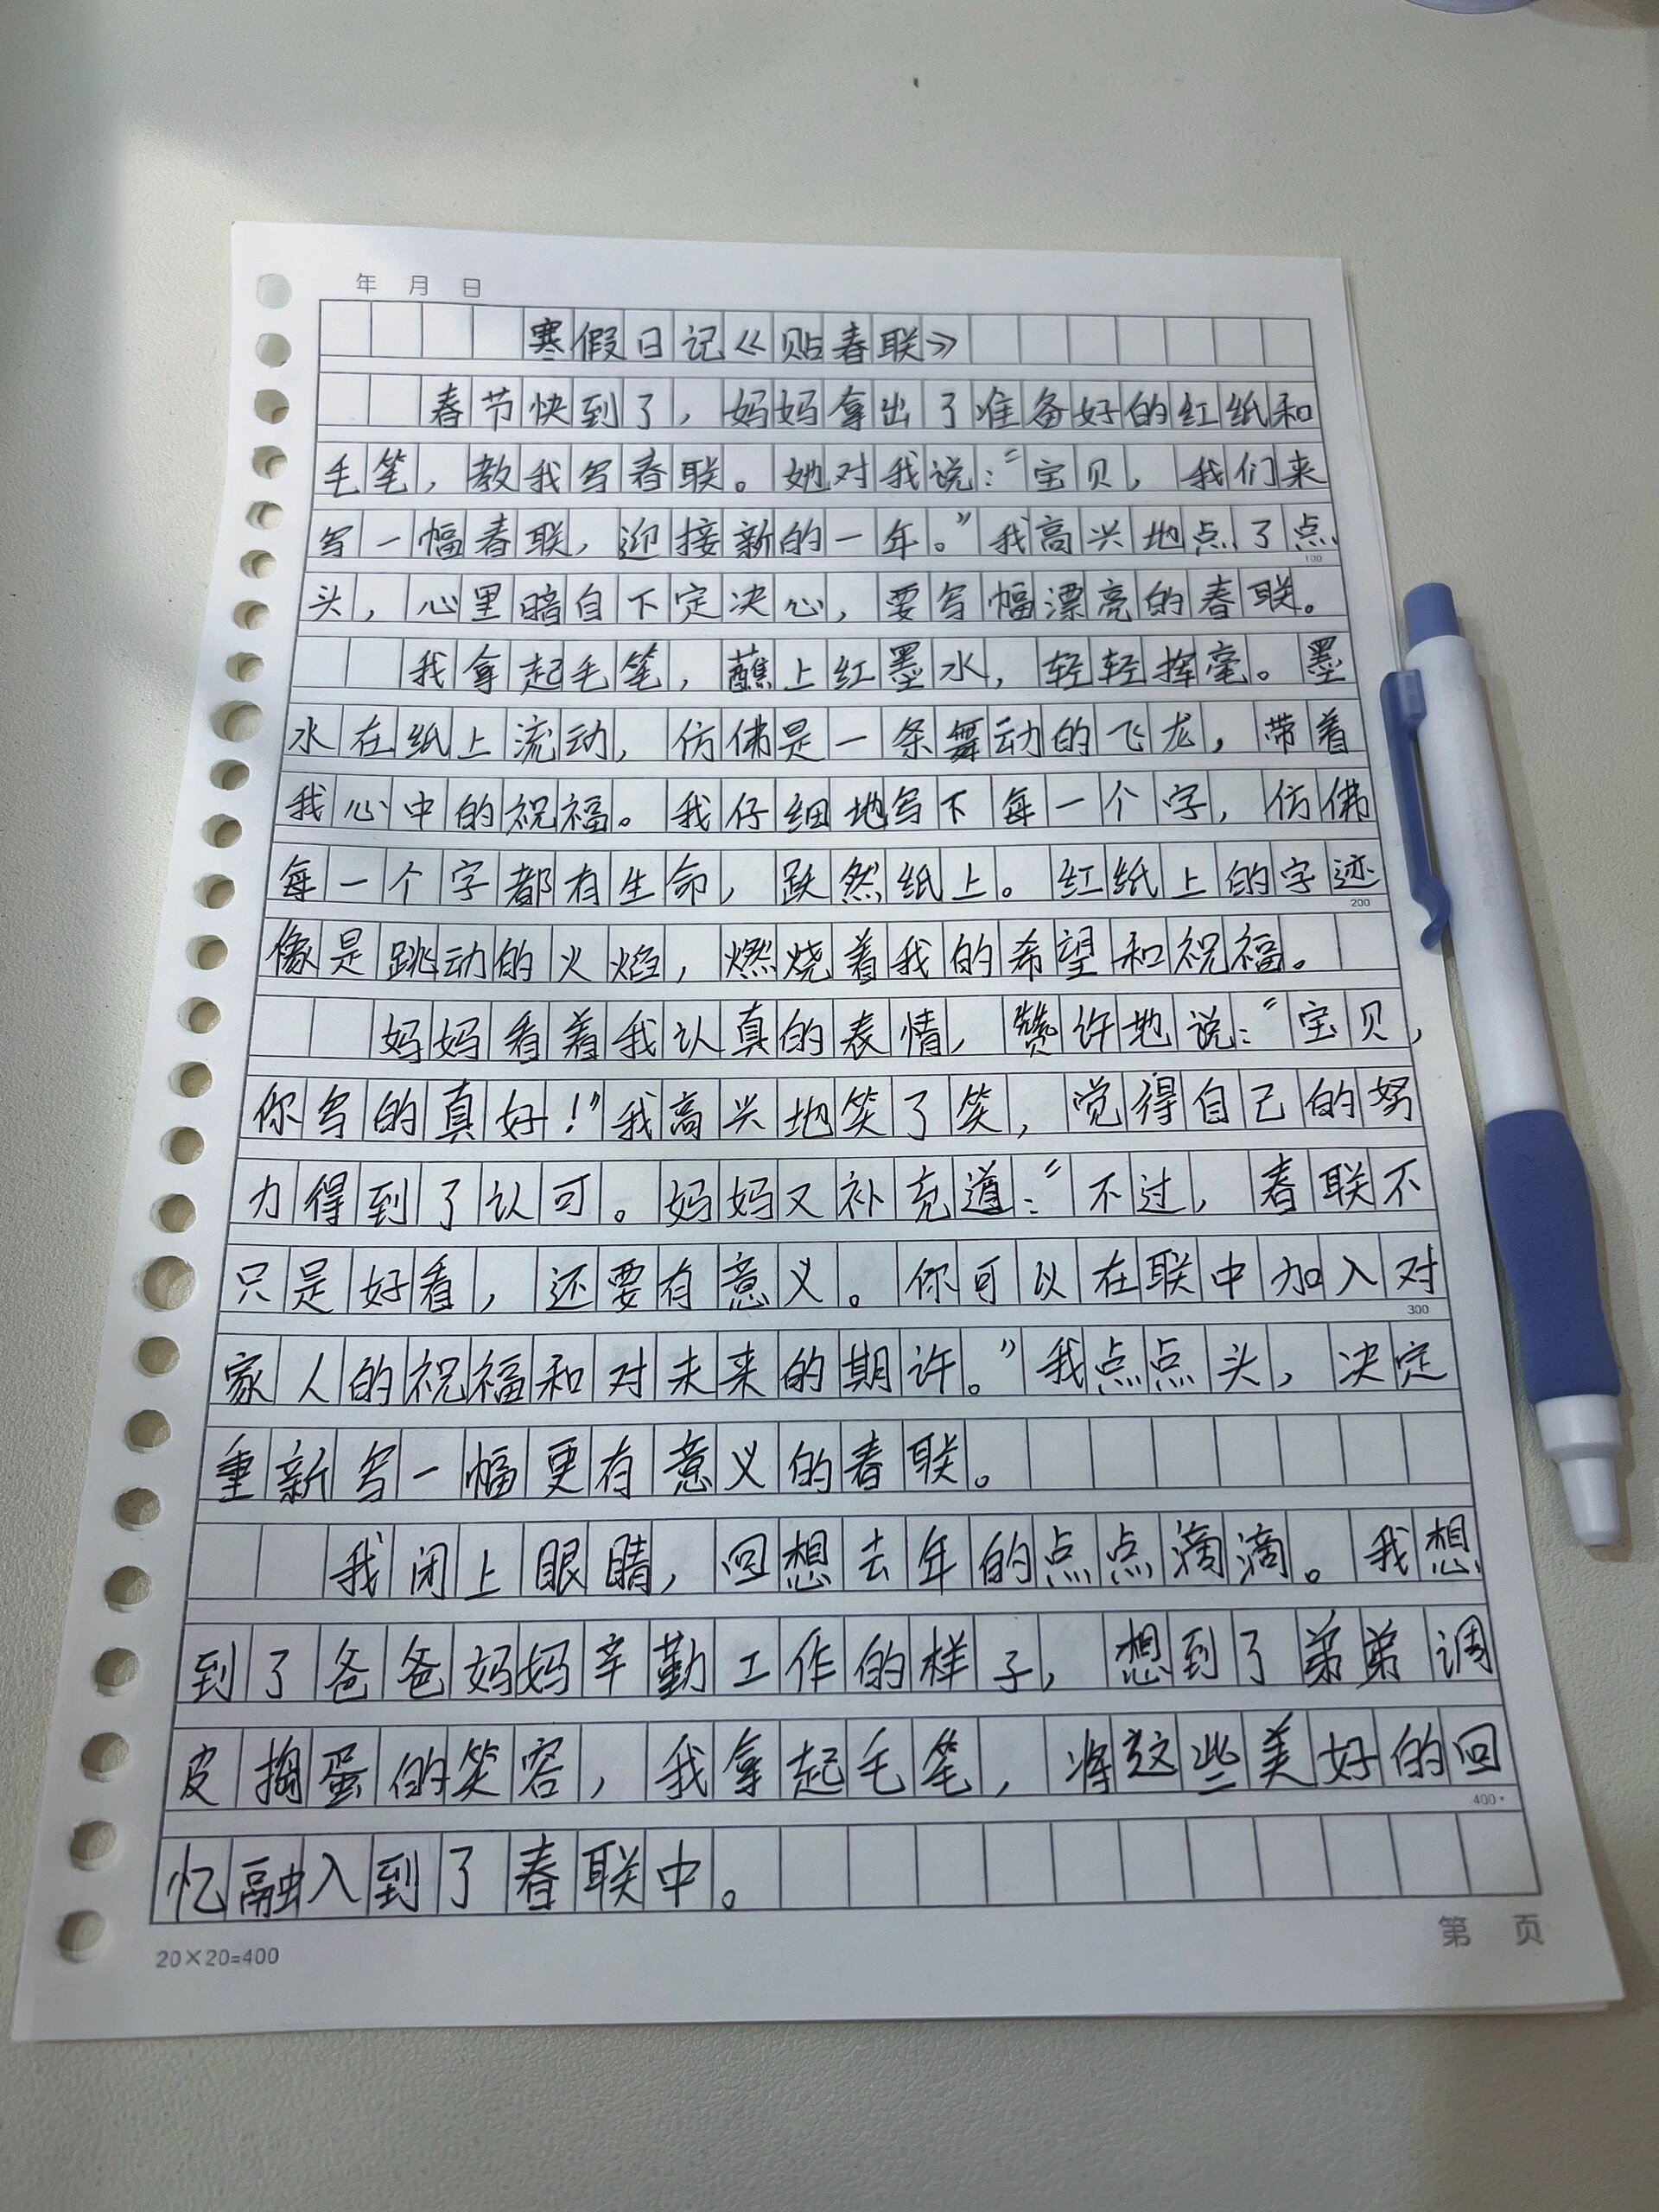 年 月 日
寒假日记《贴春联》
春节快到了，妈妈拿出了准备好的红纸和
毛笔，教我写春联。她对我说：“宝贝，我们来
写一幅春联，迎接新的一年。”我高兴地点了点
100
头，心里暗自下定决心，要写幅漂亮的春联。
我拿起毛笔，蘸上红墨水，轻轻挥毫。墨
水在纸上流动，仿佛是一条舞动的飞龙，带着
我心中的祝福。我仔细地写下每一个字，仿佛
每一个字都有生命，跃然纸上。红纸上的字迹
200
像是跳动的火焰，燃烧着我的希望和祝福。
妈妈看着我认真的表情，赞许地说：“宝贝，
你写的真好！”我高兴地笑了笑，觉得自己的努
力得到了认可。妈妈又补充道：“不过，春联不
只是好看，还要有意义。你可以在联中加入对
300
家人的祝福和对未来的期许。”我点点头，决定
重新写一幅更有意义的春联。
我闭上眼睛，回想去年的点点滴滴。我想
到了爸爸妈妈辛勤工作的样子，想到了弟弟调
皮捣蛋的笑容，我拿起毛笔，将这些美好的回
400
忆融入到了春联中。
20×20=400
第 页